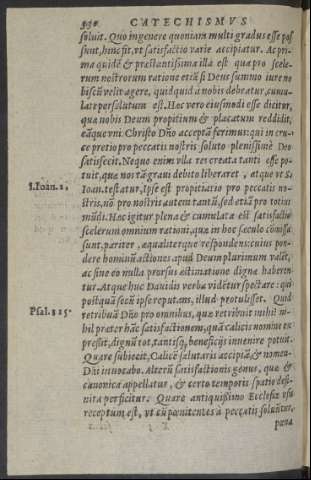 390 CATECHISMVS
soluit. Quo in genere quoniam multi gradus esse pos
sunt, hinc fit, vt satisfactio varie accipiatur. Ac pri
ma quidē & præstantissima illa est qua pro scele-
rum nostrorum ratione etiā si Deus summo iure no
biscū velit agere, quidquid a nobis debeatur, cumu-
late persolutum est. Hæc vero eiusmodi esse dicitur,
quæ nobis Deum propitium & placatum reddidit,
eāque vni Christo Dño acceptā ferimus: qui in cru-
ce pretio pro peccatis nostris soluto plenissimè Deo
satisfecit. Neque enim vlla res creata tanti esse po-
tuit, quæ nos tā graui debito liberaret, atque vt S.
1. Ioan. 2. Ioan. testatur, Ipse est propitiatio pro peccatis no-
stris, nō pro nostris autem tantū, sed etiā pro totius
mūdi. Hæc igitur plena & cumulata est satisfactio
scelerum omnium rationi, quæ in hoc sæculo cōmissa
sunt, pariter, æqualiterque respondens: cuius pon-
dere hominū actiones apud Deum plurimum valēt,
ac sine eo nulla prorsus æstimatione digna haberen
tur. Atque huc Dauidis verba vidētur spectare: qui
postquā secū ipse reputans, illud protulisset. Quid
Psal. 115. retribuā Dño pro omnibus, quæ retribuit mihi ni-
hil præter hāc satisfactionem, quā calicis nomine ex
pressit, dignū tot, tantisq́, beneficijs inuenire potuit.
Quare subiecit, Calicē salutaris accipiā, & nomen
Dñi inuocabo. Alterū satisfactionis genus, quæ &
canonica appellatur, & certo temporis spatio defi-
nita perficitur. Quare antiquissimo Ecclesiæ vsu
receptum est, vt cū pœnitentes a peccatis soluūtur,
pœna